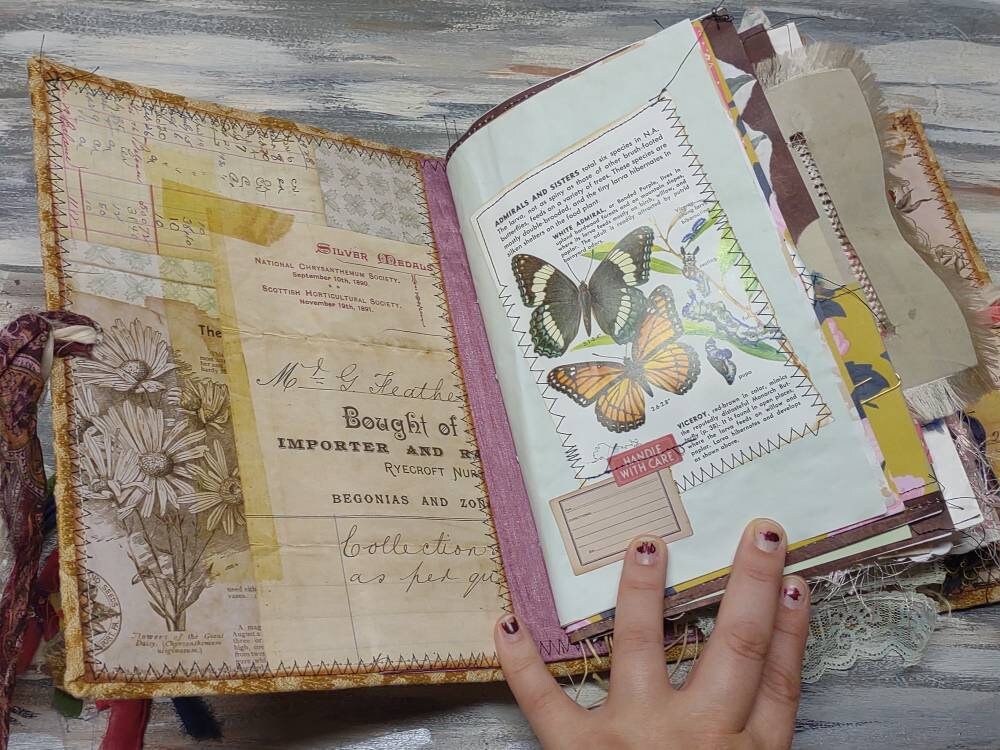 SILVER MEDALS
NATIONAL CHRYSANTHEMUM SOCIETY,
September 10th, 1890.
SCOTTISH HORTICULTURAL SOCIETY,
November 19th, 1891.
The
Mr G Feathe
Bought of
IMPORTER AND R
RYECROFT NUR
BEGONIAS AND ZON
Collection
as per qu
Flowers of the Giant
Daisy, (Chrysanthemum
uliginosum.)
need eith
vases.
A mag
August a
three or
high, an
from two
ADMIRALS AND SISTERS total six species in N.A.
The larvae, not as spiny as those of other brush-footed
butterflies, feed on a variety of trees. These species are
mostly double-brooded, and the tiny larva hibernates in
silken shelters on the food plant.
WHITE ADMIRAL, or Banded Purple, lives in
upland hardwood forests and on mountain slopes,
where its larva feeds mostly on birch, willow, and
poplar. The adult is readily attracted by putrid
barnyard odors.
pupa
2.6-2.8"
VICEROY, red-brown in color, mimics
the reputedly distasteful Monarch But-
terfly (p. 38). It is found in open places,
where the larva feeds on willow and
poplar. Larva hibernates and develops
as shown above.
HANDLE
WITH CARE